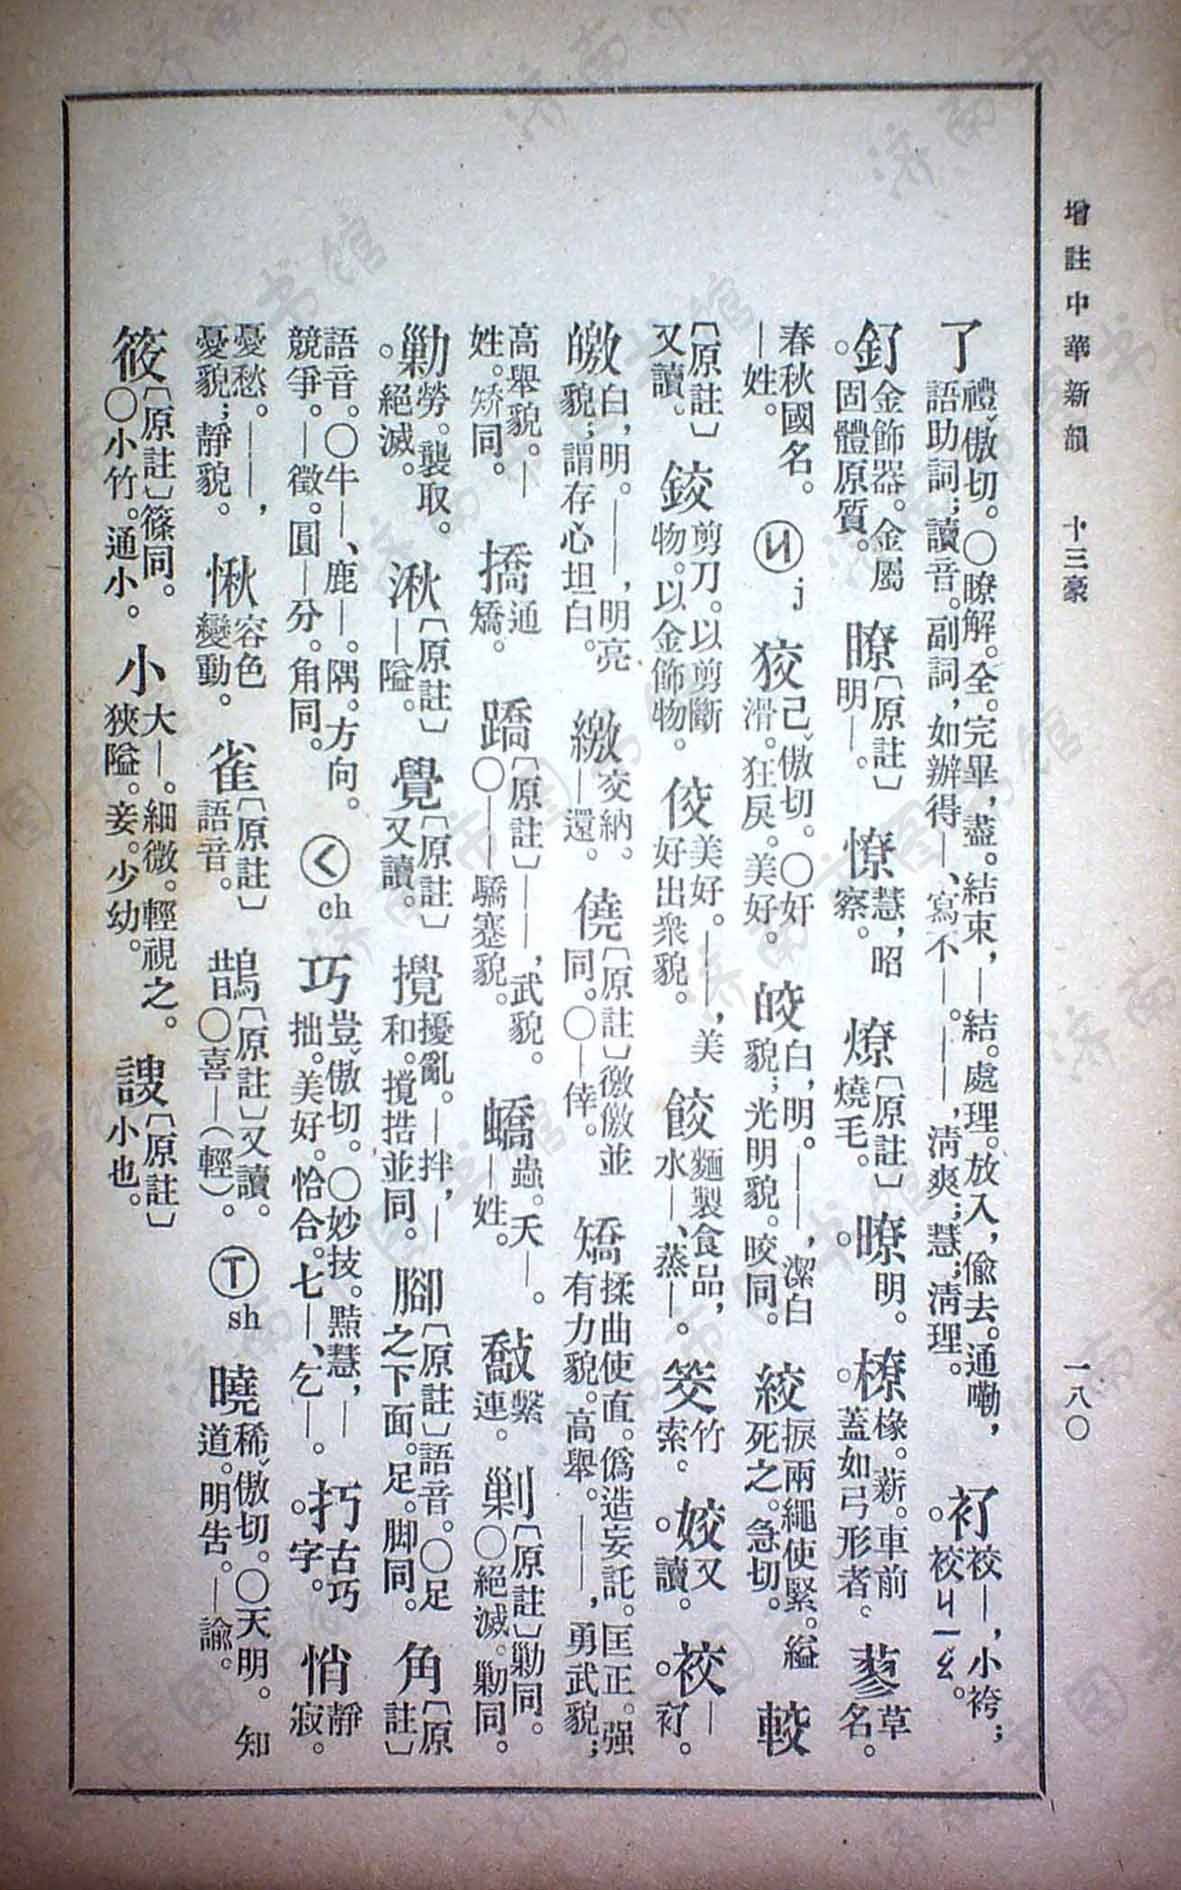 增註中華新韻 十三豪 一八〇
了禮ˇ傲切。〇瞭解。全。完畢,盡。結束,—結。處理。放入,偷去。通嘞,語助詞;讀音。副詞,如辦得—、寫不—。——,清爽;慧;清理。 𧘈䘨—,小袴;䘨ㄐㄧㄠˇ。
釕金飾器。金屬。固體原質。 瞭〔原註〕明—。 憭慧,昭察。 燎〔原註〕燒毛。 暸明。 橑椽。薪。車前。蓋如弓形者。 蓼草名。
春秋國名。—姓。 ㄐ j 狡己ˇ傲切。〇奸滑。狂戾。美好。 皎白,明。——,潔白貌;光明貌。晈同。 絞捩兩繩使緊。縊死之。急切。 較
〔原註〕又讀。 鉸剪刀。以剪斷物。以金飾物。 佼美好。——,美好出衆貌。 餃麵製食品,水—、蒸—。 筊竹索。 姣又讀。 䘨—𧘈。
皦白,明。——,明亮貌;謂存心坦白。 繳交納。—還。 僥〔原註〕徼儌並同。〇—倖。 矯揉曲使直。僞造妄託。匡正。强有力貌。高舉。——,勇武貌;
高舉貌。—姓。矫同。 撟通矯。 蹻〔原註〕——,武貌。〇——驕蹇貌。 蟜蟲。夭—。—姓。 敿繫連。 剿〔原註〕勦同。〇絕滅。勦同。
勦勞。襲取。絕滅。 湫〔原註〕—隘。 覺〔原註〕又讀。 攪擾亂。—拌,—和。撹捁並同。 腳〔原註〕語音。〇足之下面。足。脚同。 角〔原註〕
語音。〇牛—、鹿—。隅。方向。競爭。—徵。圓—分。角同。 ㄑ ch 巧豈ˇ傲切。〇妙技。黠慧,—拙。美好。恰合。七—、乞—。 古巧字。 悄靜寂。
憂愁。——,憂貌;靜貌。 愀容色變動。 雀〔原註〕語音。 鵲〔原註〕又讀。〇喜—(輕)。 ㄒ sh 曉稀ˇ傲切。〇天明。知道。明告。—諭。
筱〔原註〕篠同。〇小竹。通小。 小大—。細微。輕視之。狹隘。妾。少幼。 謏〔原註〕小也。